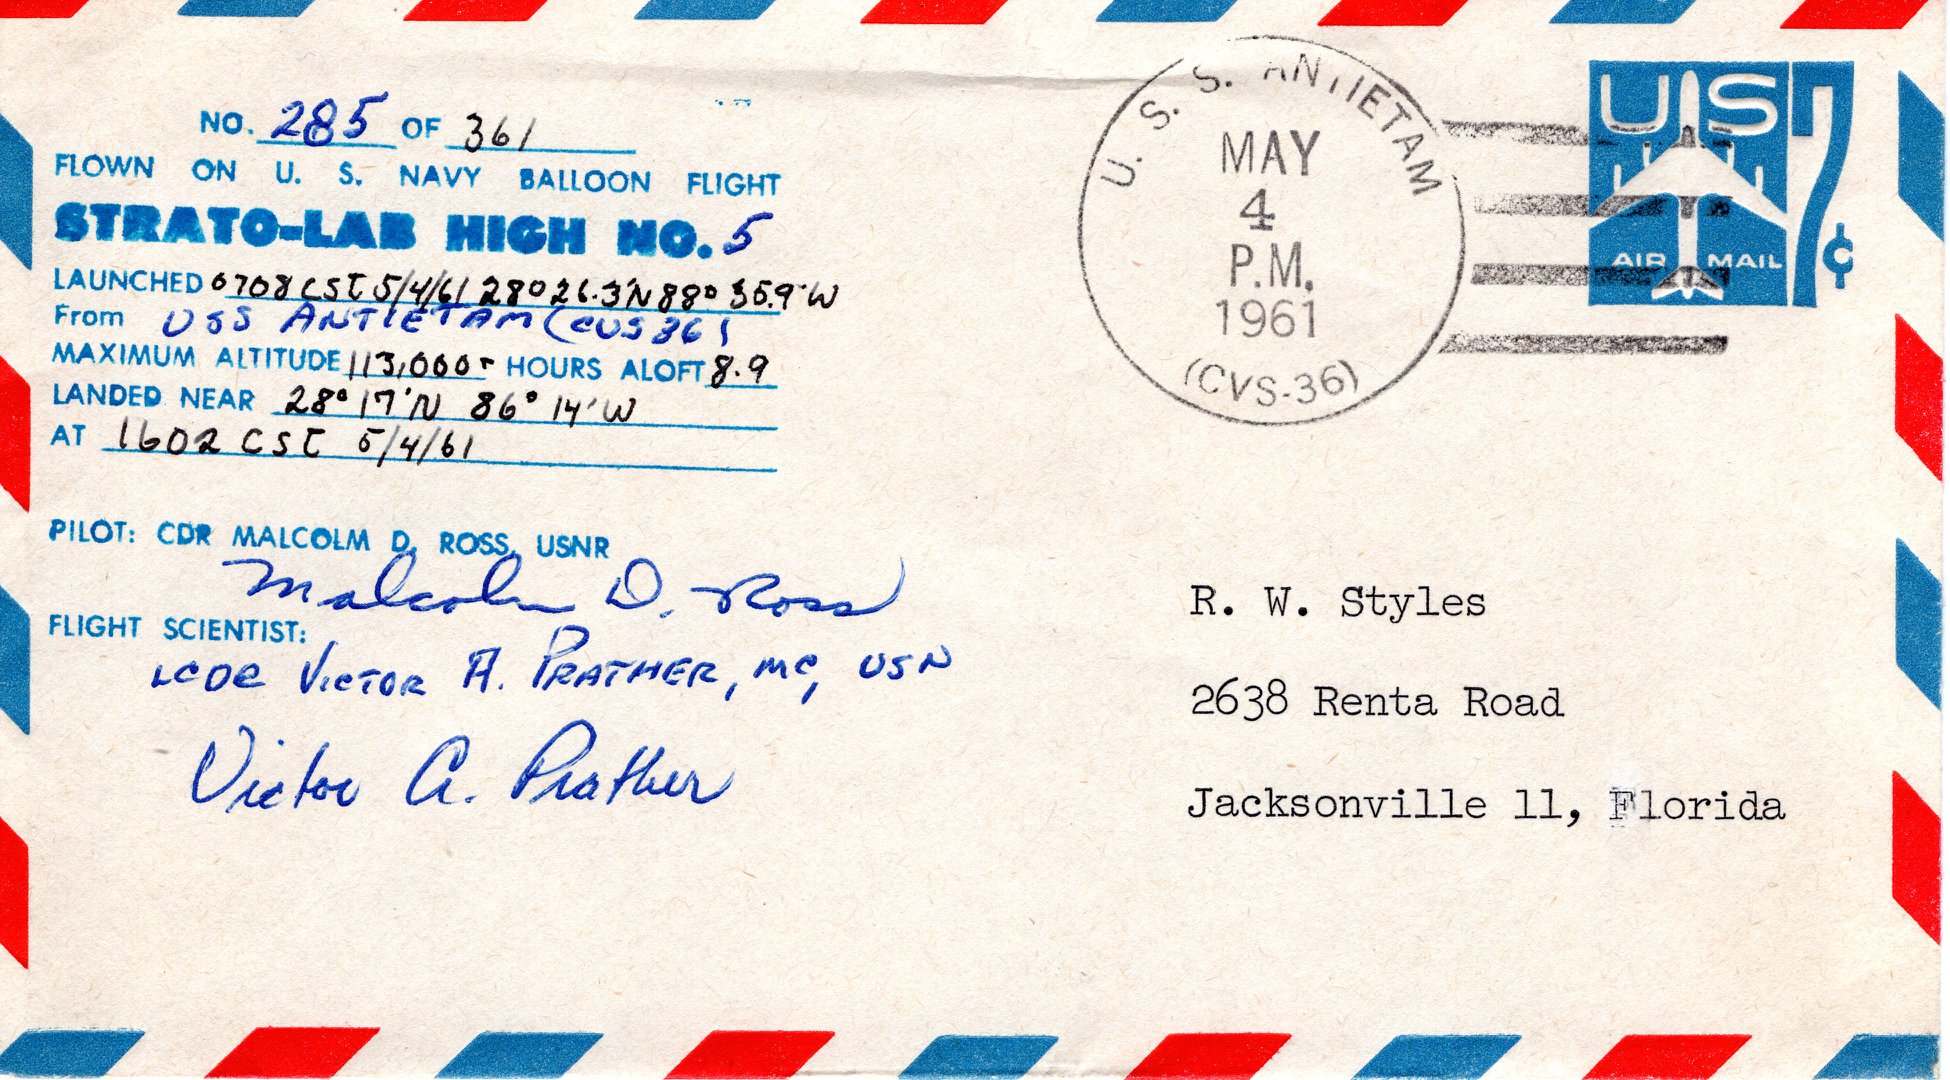 NO. 285 OF 361
FLOWN ON U. S. NAVY BALLOON FLIGHT
STRATO-LAB HIGH NO. 5
LAUNCHED 0708 CST 5/4/61 28° 26.3'N 88° 35.9'W
From USS ANTIETAM (CVS 36)
MAXIMUM ALTITUDE 113,000+ HOURS ALOFT 8.9
LANDED NEAR 28° 17'N 86° 14'W
AT 1602 CST 5/4/61
PILOT: CDR MALCOLM D. ROSS, USNR
Malcolm D. Ross
FLIGHT SCIENTIST:
LCDR VICTOR A. PRATHER, MC, USN
Victor A. Prather
U. S. S. ANTIETAM
MAY
4
P.M.
1961
(CVS-36)
US 7¢
AIR MAIL
R. W. Styles
2638 Renta Road
Jacksonville 11, Florida